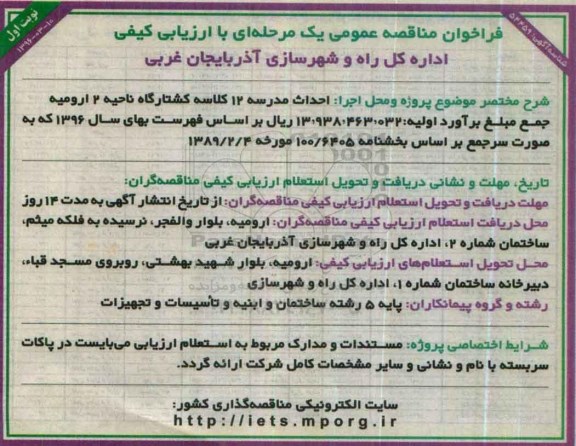 نوبت اول
۱۳۹۶-۰۳-۱۰
شناسه آگهی: ۵۴۴۵۹
فراخوان مناقصه عمومی یک مرحله‌ای با ارزیابی کیفی
اداره کل راه و شهرسازی آذربایجان غربی
شرح مختصر موضوع پروژه ومحل اجرا: احداث مدرسه ۱۲ کلاسه کشتارگاه ناحیه ۲ ارومیه
جمع مبلغ برآورد اولیه:۱۳،۹۳۸،۴۶۳،۰۳۲ ریال بر اساس فهرست بهای سال ۱۳۹۶ که به
صورت سرجمع بر اساس بخشنامه ۱۰۰/۶۴۰۵ مورخه ۱۳۸۹/۲/۴
تاریخ، مهلت و نشانی دریافت و تحویل استعلام ارزیابی کیفی مناقصه‌گران:
مهلت دریافت و تحویل استعلام ارزیابی کیفی مناقصه‌گران: از تاریخ انتشار آگهی به مدت ۱۴ روز
محل دریافت استعلام ارزیابی کیفی مناقصه‌گران: ارومیه، بلوار والفجر، نرسیده به فلکه میثم،
ساختمان شماره ۲، اداره کل راه و شهرسازی آذربایجان غربی
محل تحویل استعلام‌های ارزیابی کیفی: ارومیه، بلوار شهید بهشتی، روبروی مسجد قباء،
دبیرخانه ساختمان شماره ۱، اداره کل راه و شهرسازی
رشته و گروه پیمانکاران: پایه ۵ رشته ساختمان و ابنیه و تأسیسات و تجهیزات
شرایط اختصاصی پروژه: مستندات و مدارک مربوط به استعلام ارزیابی می‌بایست در پاکات
سربسته با نام و نشانی و سایر مشخصات کامل شرکت ارائه گردد.
سایت الکترونیکی مناقصه‌گذاری کشور:
http://iets.mporg.ir